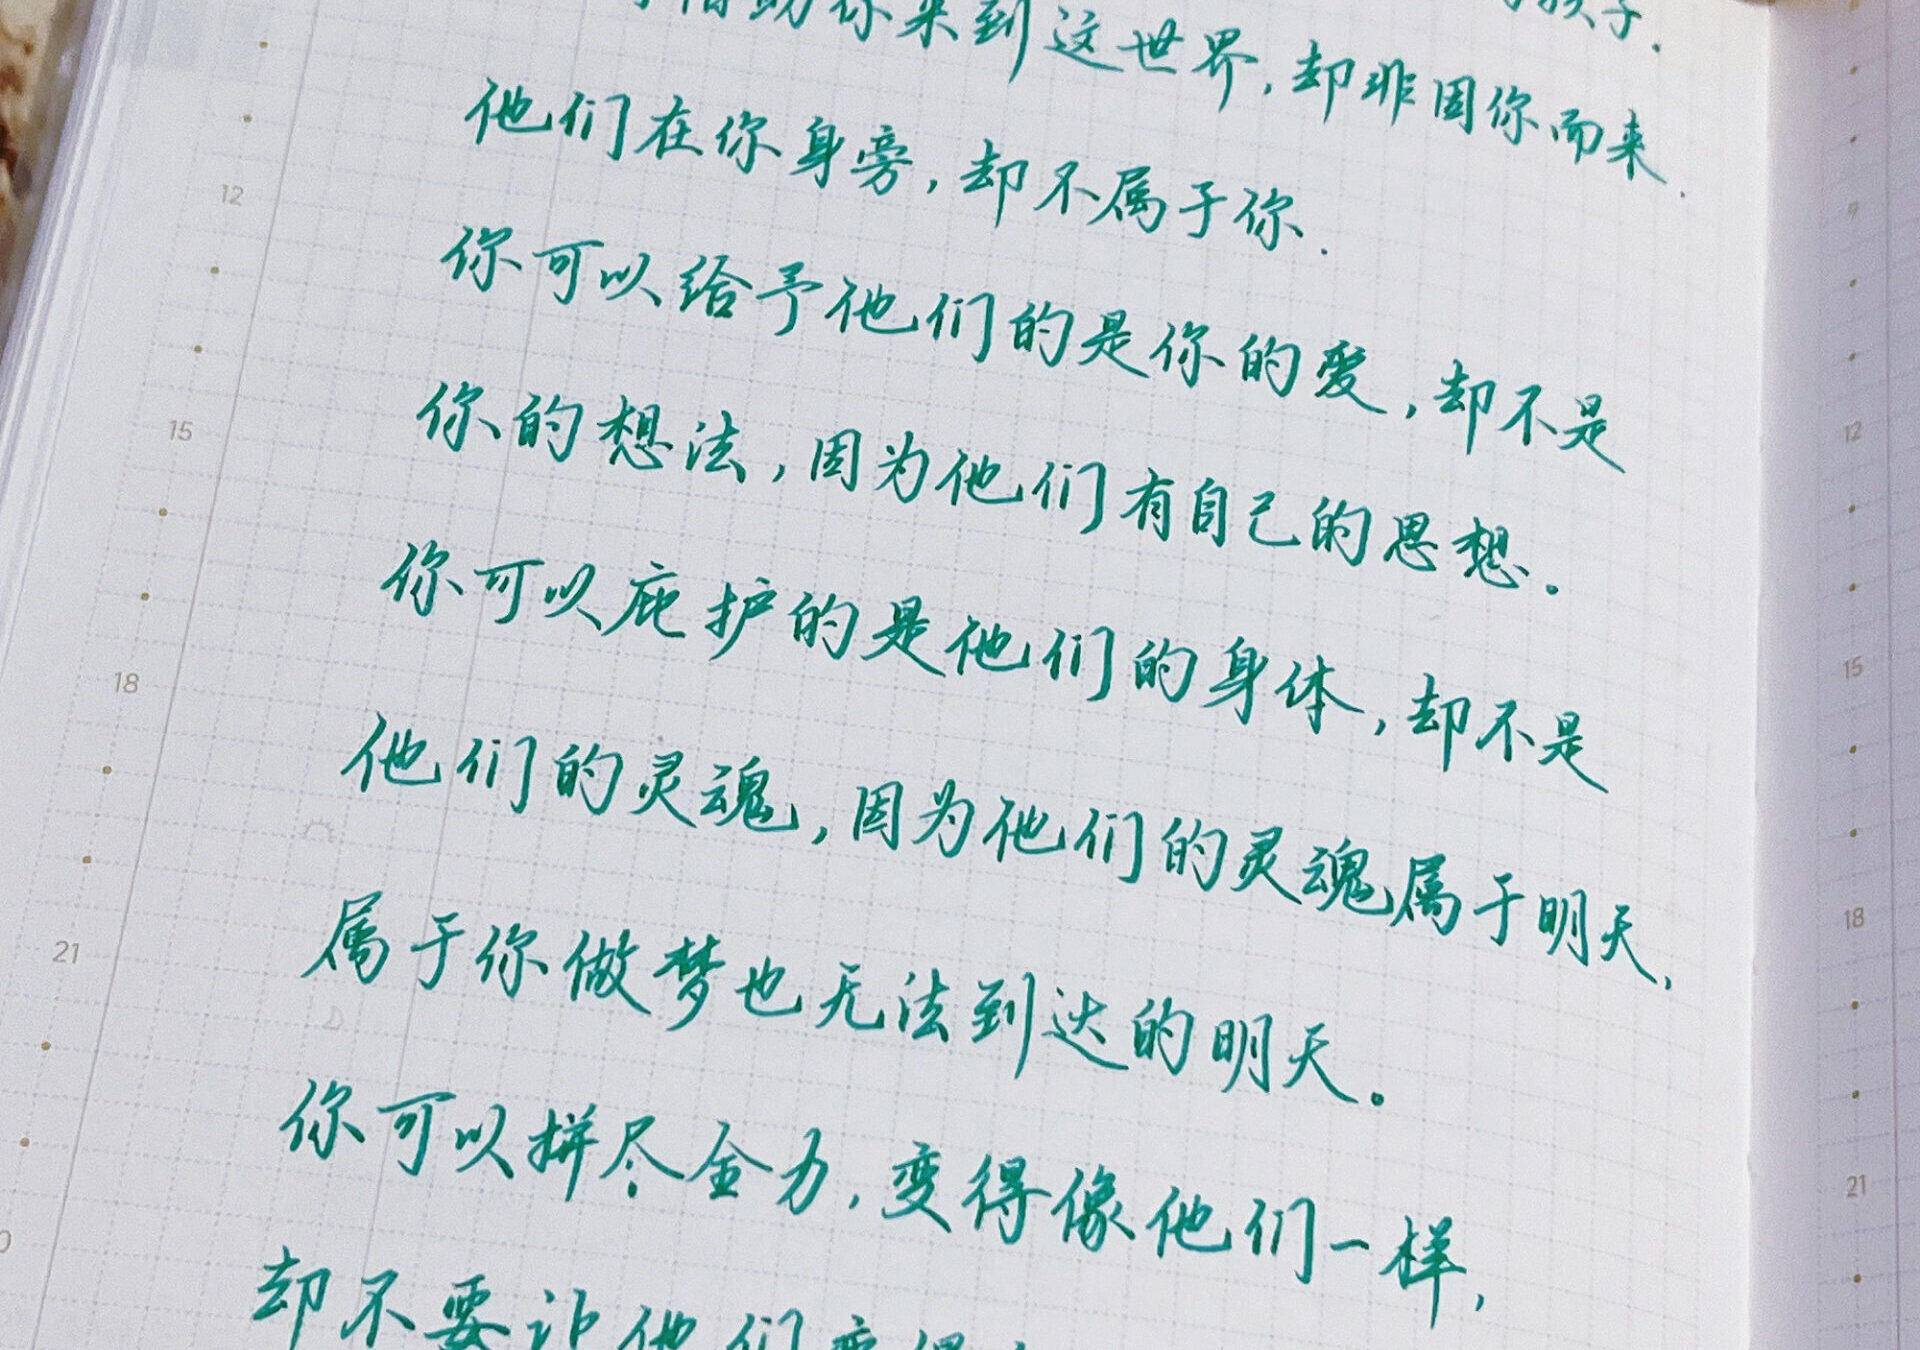 借助你来到这世界,却非因你而来.
他们在你身旁,却不属于你.
你可以给予他们的是你的爱,却不是
你的想法,因为他们有自己的思想。
你可以庇护的是他们的身体,却不是
他们的灵魂,因为他们的灵魂属于明天,
属于你做梦也无法到达的明天。
你可以拼尽全力,变得像他们一样,
却不要让他们变得
12
15
18
21
9
12
15
18
21